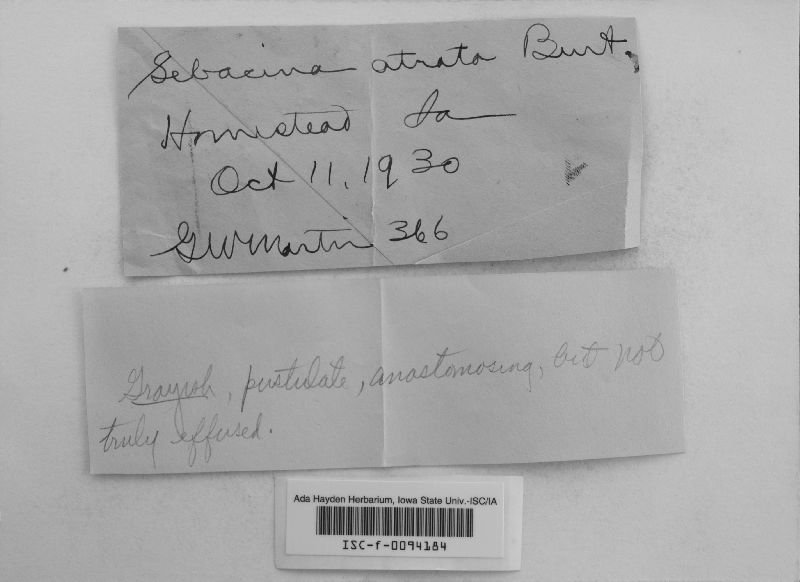 Sebacina atrata Burt.
Homestead Ia
Oct 11, 1930
GWMartin 366
Grayish, pustulate, anastomosing, but not
truly effused.
Ada Hayden Herbarium, Iowa State Univ.-ISC/IA
ISC-f-0094184